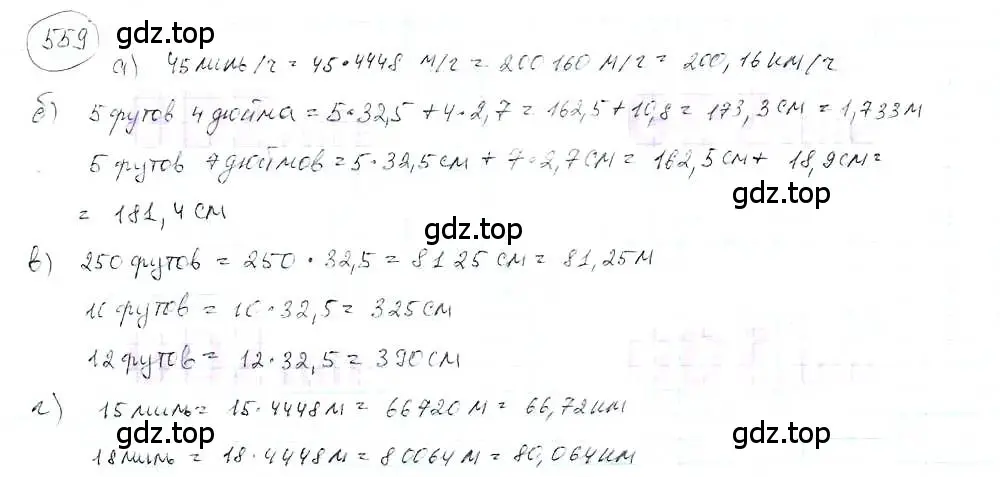 559 gdz.top gdz.top
а) 45 миль/ч = 45·4448 м/ч = 200160 м/ч = 200,16 км/ч
б) 5 футов 4 дюйма = 5·32,5 + 4·2,7 = 162,5 + 10,8 = 173,3 см = 1,733 м
5 футов 7 дюймов = 5·32,5 см + 7·2,7 см = 162,5 см + 18,9 см =
gdz.top
= 181,4 см
gdz.top
в) 250 футов = 250·32,5 = 8125 см = 81,25 м
10 футов = 10·32,5 = 325 см
12 футов = 12·32,5 = 390 см
gdz.top gdz.top
г) 15 миль = 15·4448 м = 66720 м = 66,72 км
18 миль = 18·4448 м = 80064 м = 80,064 км